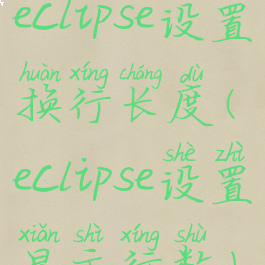 eclipse设置
huàn xíng cháng dù
换行长度(
shè zhì
eclipse设置
xiǎn shì xíng shù
显示行数)